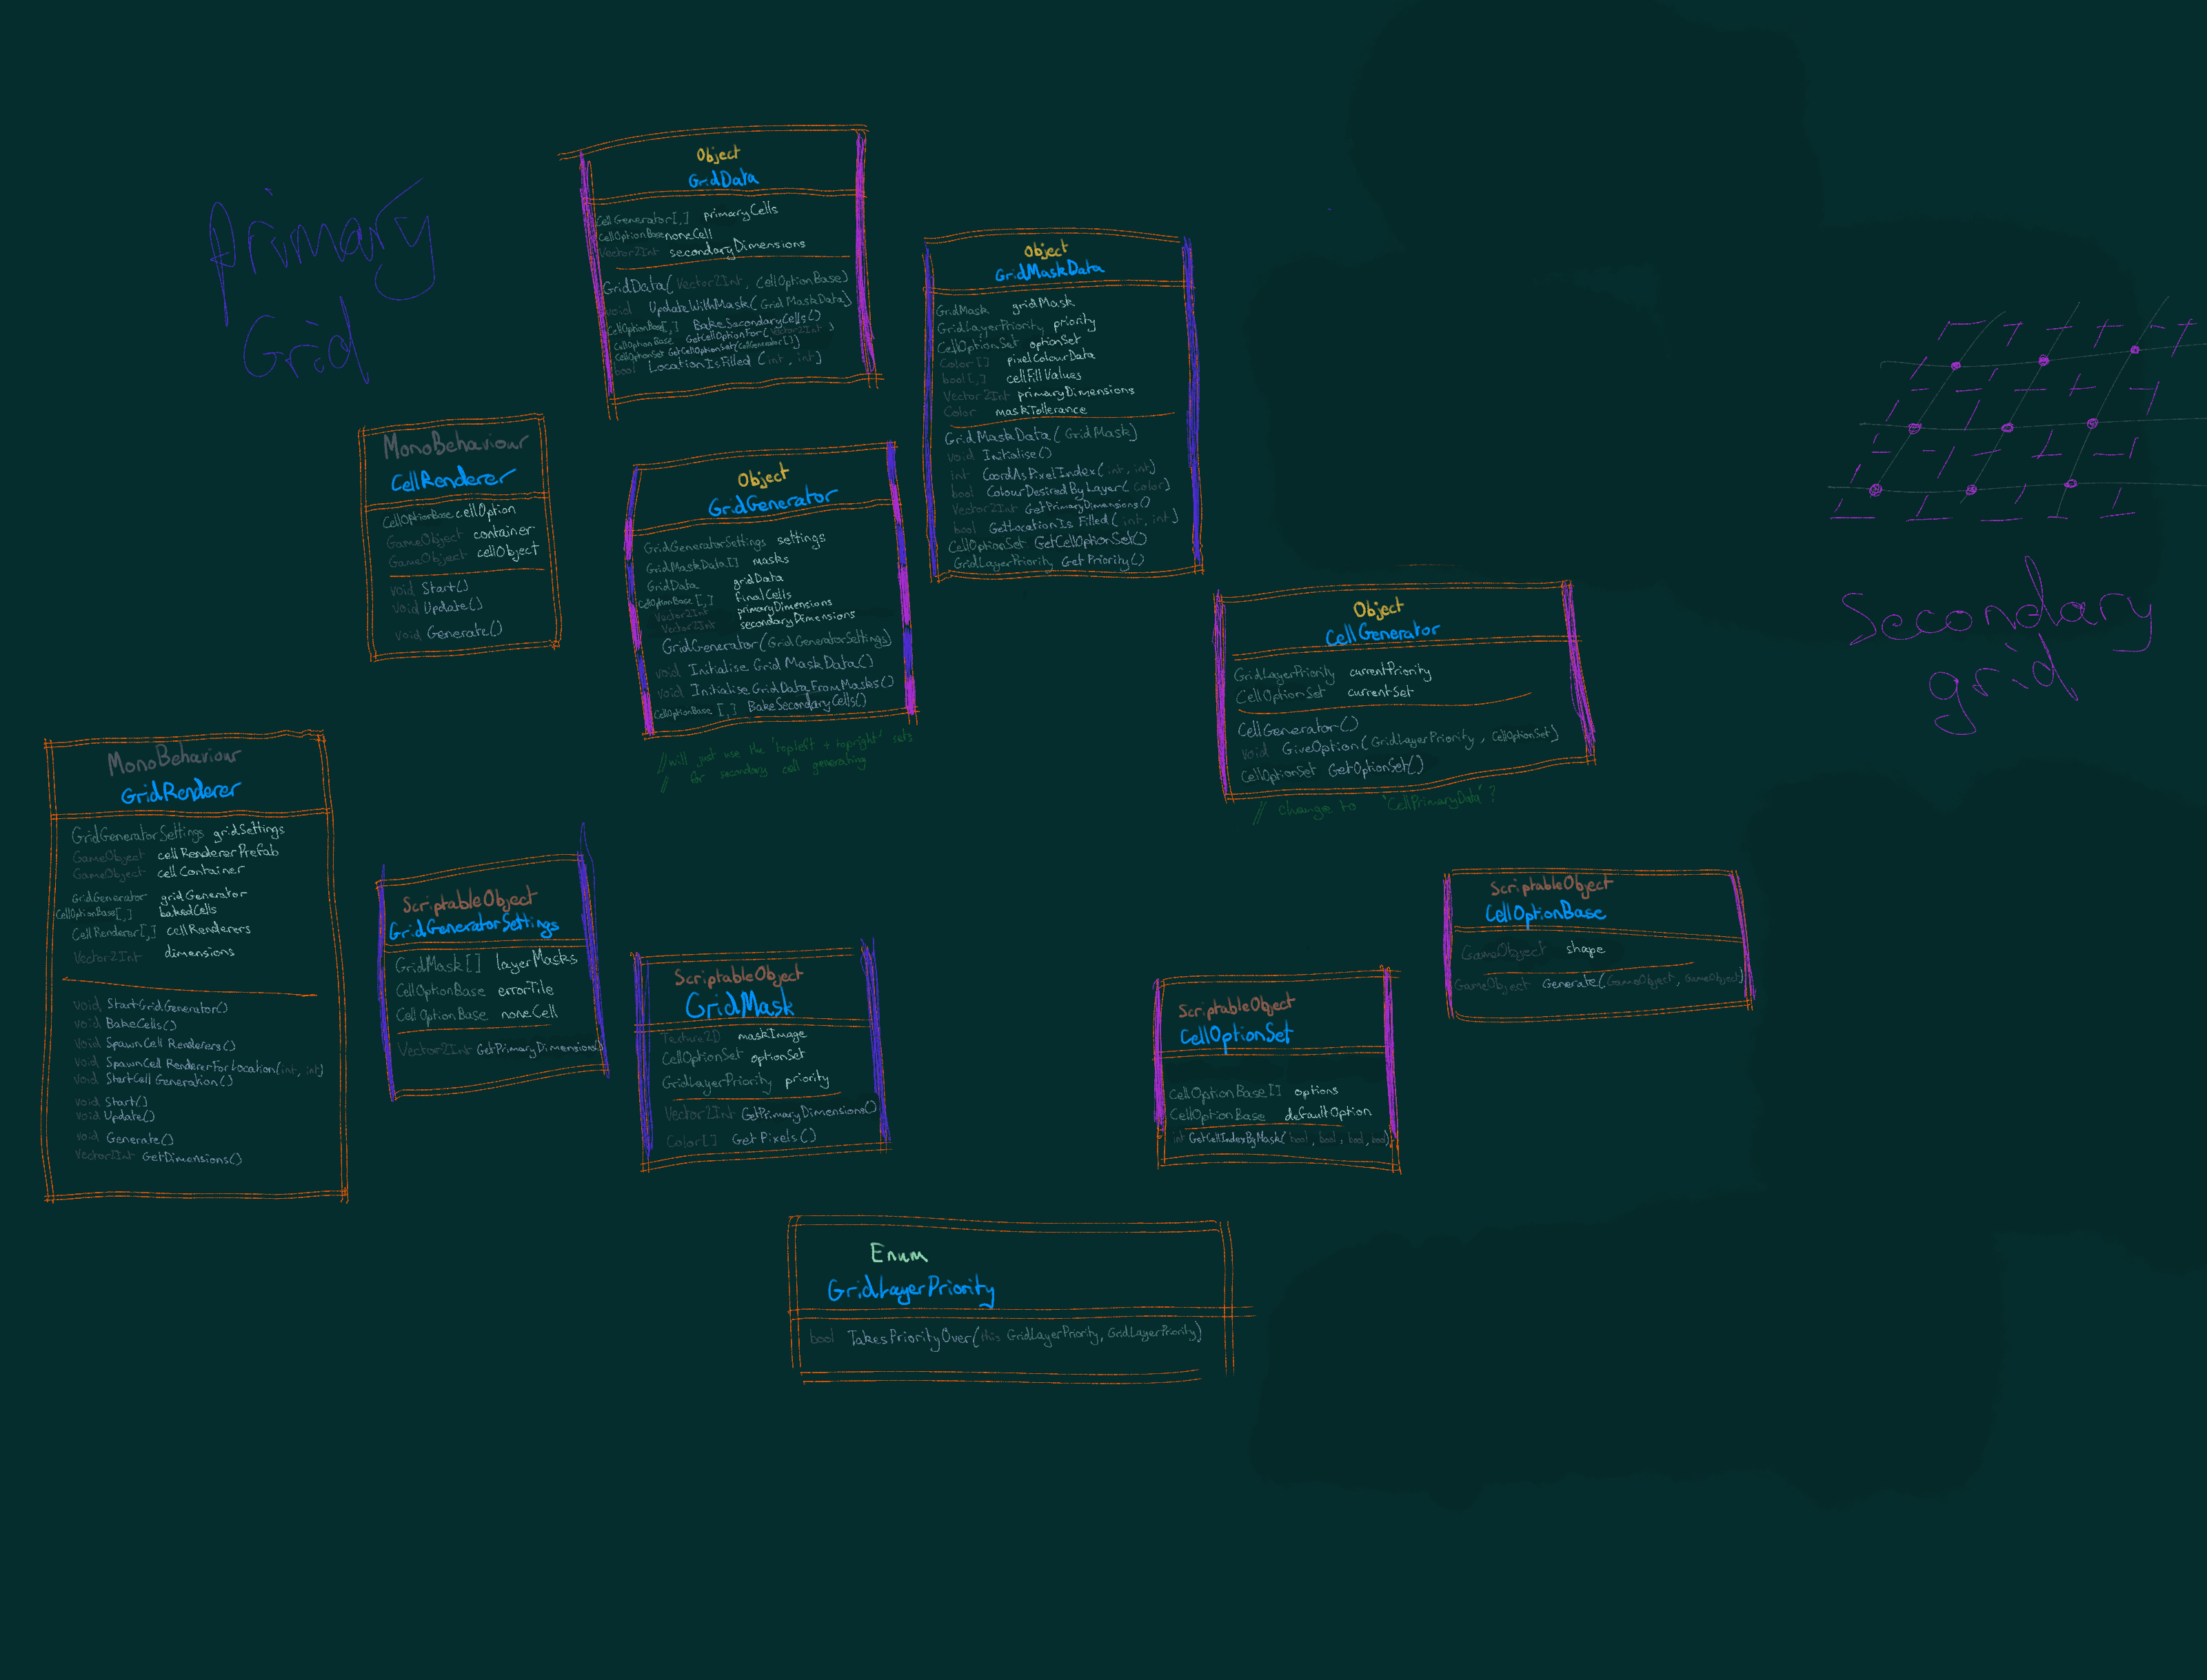 Primary
Grid
Object
GridData
CellGenerator[,] primaryCells
CellOptionBase noneCell
Vector2Int secondaryDimensions
GridData(Vector2Int, CellOptionBase)
void UpdateWithMask(GridMaskData)
CellOptionBase[,] BakeSecondaryCells()
CellOptionBase GetCellOptionFor(Vector2Int)
CellOptionSet GetCellOptionSet(CellGenerator[])
bool LocationIsFilled (int, int)
Object
GridMaskData
GridMask gridMask
GridLayerPriority priority
CellOptionSet optionSet
Color[] pixelColourData
bool[,] cellFillValues
Vector2Int primaryDimensions
Color maskTollerance
GridMaskData(GridMask)
void Initialise()
int CoordAsPixelIndex(int, int)
bool ColourDesiredByLayer(color)
Vector2Int GetPrimaryDimensions()
bool GetLocationIsFilled(int, int)
CellOptionSet GetCellOptionSet()
GridLayerPriority GetPriority()
MonoBehaviour
CellRenderer
CellOptionBase cellOption
GameObject container
GameObject cellObject
void Start()
void Update()
void Generate()
Object
GridGenerator
GridGeneratorSettings settings
GridMaskData[] masks
GridData gridData
CellOptionBase[,] finalCells
Vector2Int primaryDimensions
Vector2Int secondaryDimensions
GridGenerator(GridGeneratorSettings)
void InitialiseGridMaskData()
void InitialiseGridDataFromMasks()
CellOptionBase[,] BakeSecondaryCells()
//will just use the 'topleft + topright' sets
// for secondary cell generating
Object
CellGenerator
GridLayerPriority currentPriority
CellOptionSet currentSet
CellGenerator()
void GiveOption(GridLayerPriority, CellOptionSet)
CellOptionSet GetOptionSet()
// change to 'CellPrimaryData'?
Secondary
grid
MonoBehaviour
GridRenderer
GridGeneratorSettings gridSettings
GameObject cellRendererPrefab
GameObject cellContainer
GridGenerator gridGenerator
CellOptionBase[,] bakedCells
CellRenderer[,] cellRenderers
Vector2Int dimensions
void StartGridGenerator()
void BakeCells()
void SpawnCellRenderers()
void SpawnCellRendererForLocation(int, int)
void StartCellGeneration()
void Start()
void Update()
void Generate()
Vector2Int GetDimensions()
ScriptableObject
GridGeneratorSettings
GridMask[] layerMasks
CellOptionBase errorTile
CellOptionBase noneCell
Vector2Int GetPrimaryDimensions()
ScriptableObject
GridMask
Texture2D maskImage
CellOptionSet optionSet
GridLayerPriority priority
Vector2Int GetPrimaryDimensions()
Color[] GetPixels()
ScriptableObject
CellOptionSet
CellOptionBase[] options
CellOptionBase defaultOption
int GetCellIndexByMask(bool, bool, bool, bool)
ScriptableObject
CellOptionBase
GameObject shape
GameObject Generate(GameObject, GameObject)
Enum
GridLayerPriority
bool TakesPriorityOver(this GridLayerPriority, GridLayerPriority)